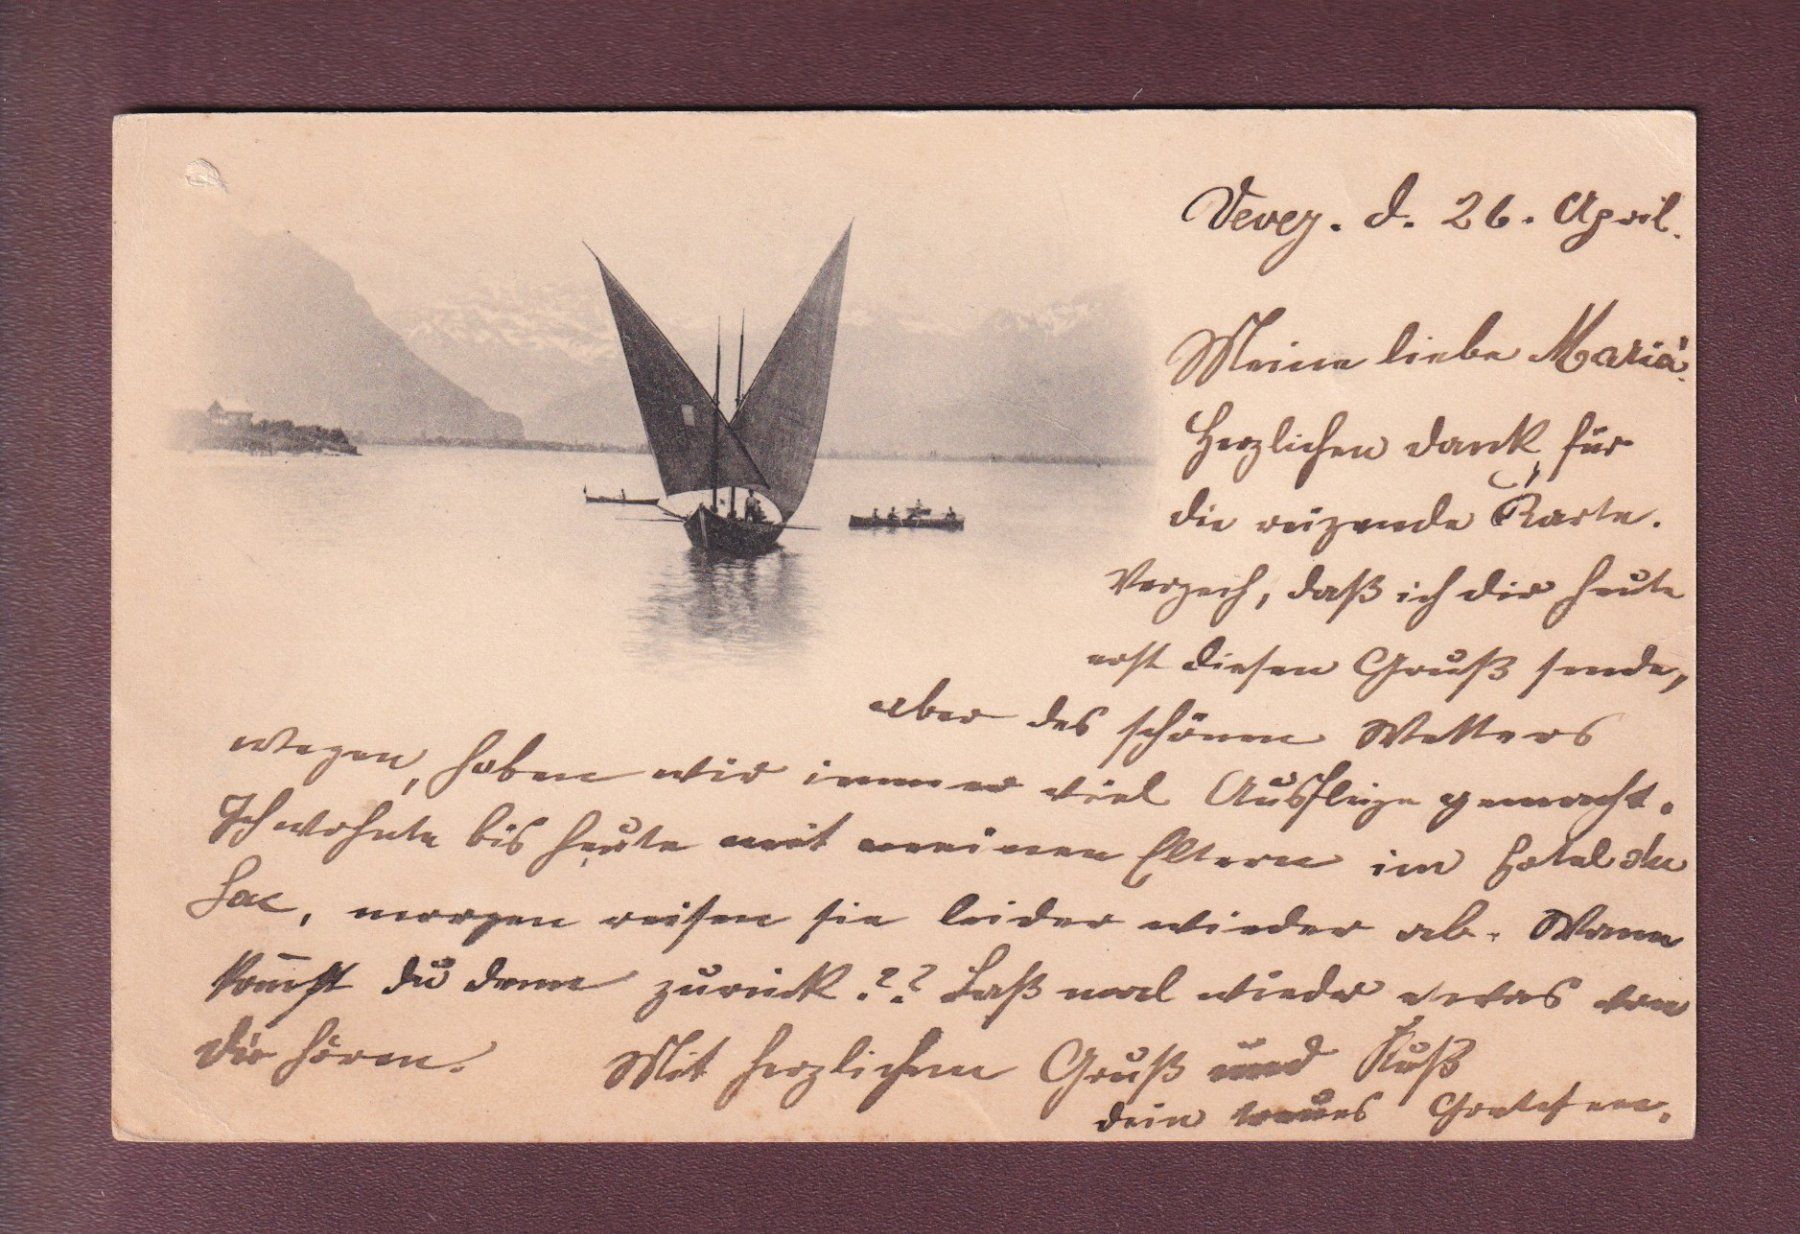 Vevey. d. 26. April.
Meine liebe Maria!
Herzlichen Dank für
die reizende Karte.
Verzeih, daß ich dir heute
erst diesen Gruß sende,
aber des schönen Wetters
wegen, haben wir immer viel Ausflüge gemacht.
Ich wohnte bis heute mit meinen Eltern im Hotel du
Lac, morgen reisen sie leider wieder ab. Wann
kom̅st du denn zurück?? Laß mal wieder etwas von
dir hören. Mit herzlichem Gruß und Kuß
dein treues Gretchen.